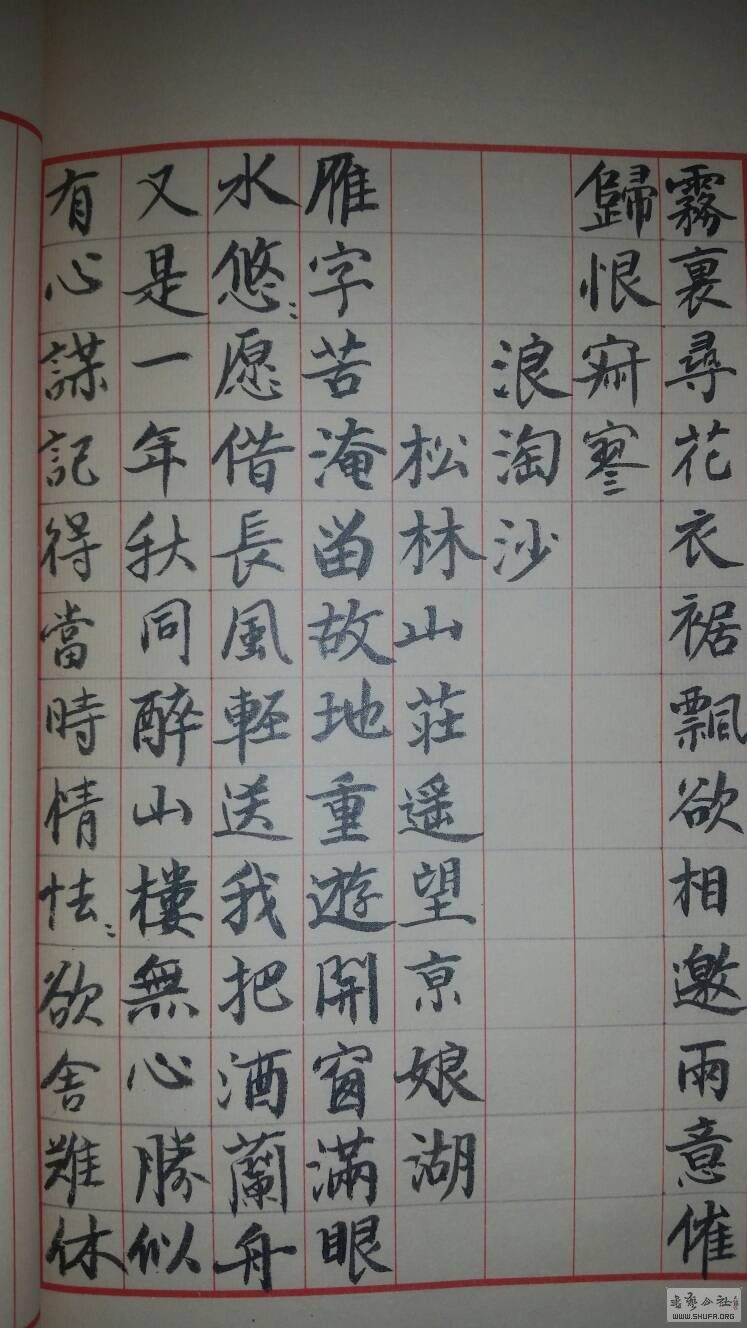 霧裏尋花衣裾飄欲相邀兩意催
歸恨寂寥
浪淘沙
松林山莊遥望京娘湖
雁字苦淹留故地重遊開窗滿眼
水悠〻愿借長風輕送我把酒蘭舟
又是一年秋同醉山樓無心勝似
有心謀記得當時情怯〻欲舍難休
WWW.SHUFA.ORG